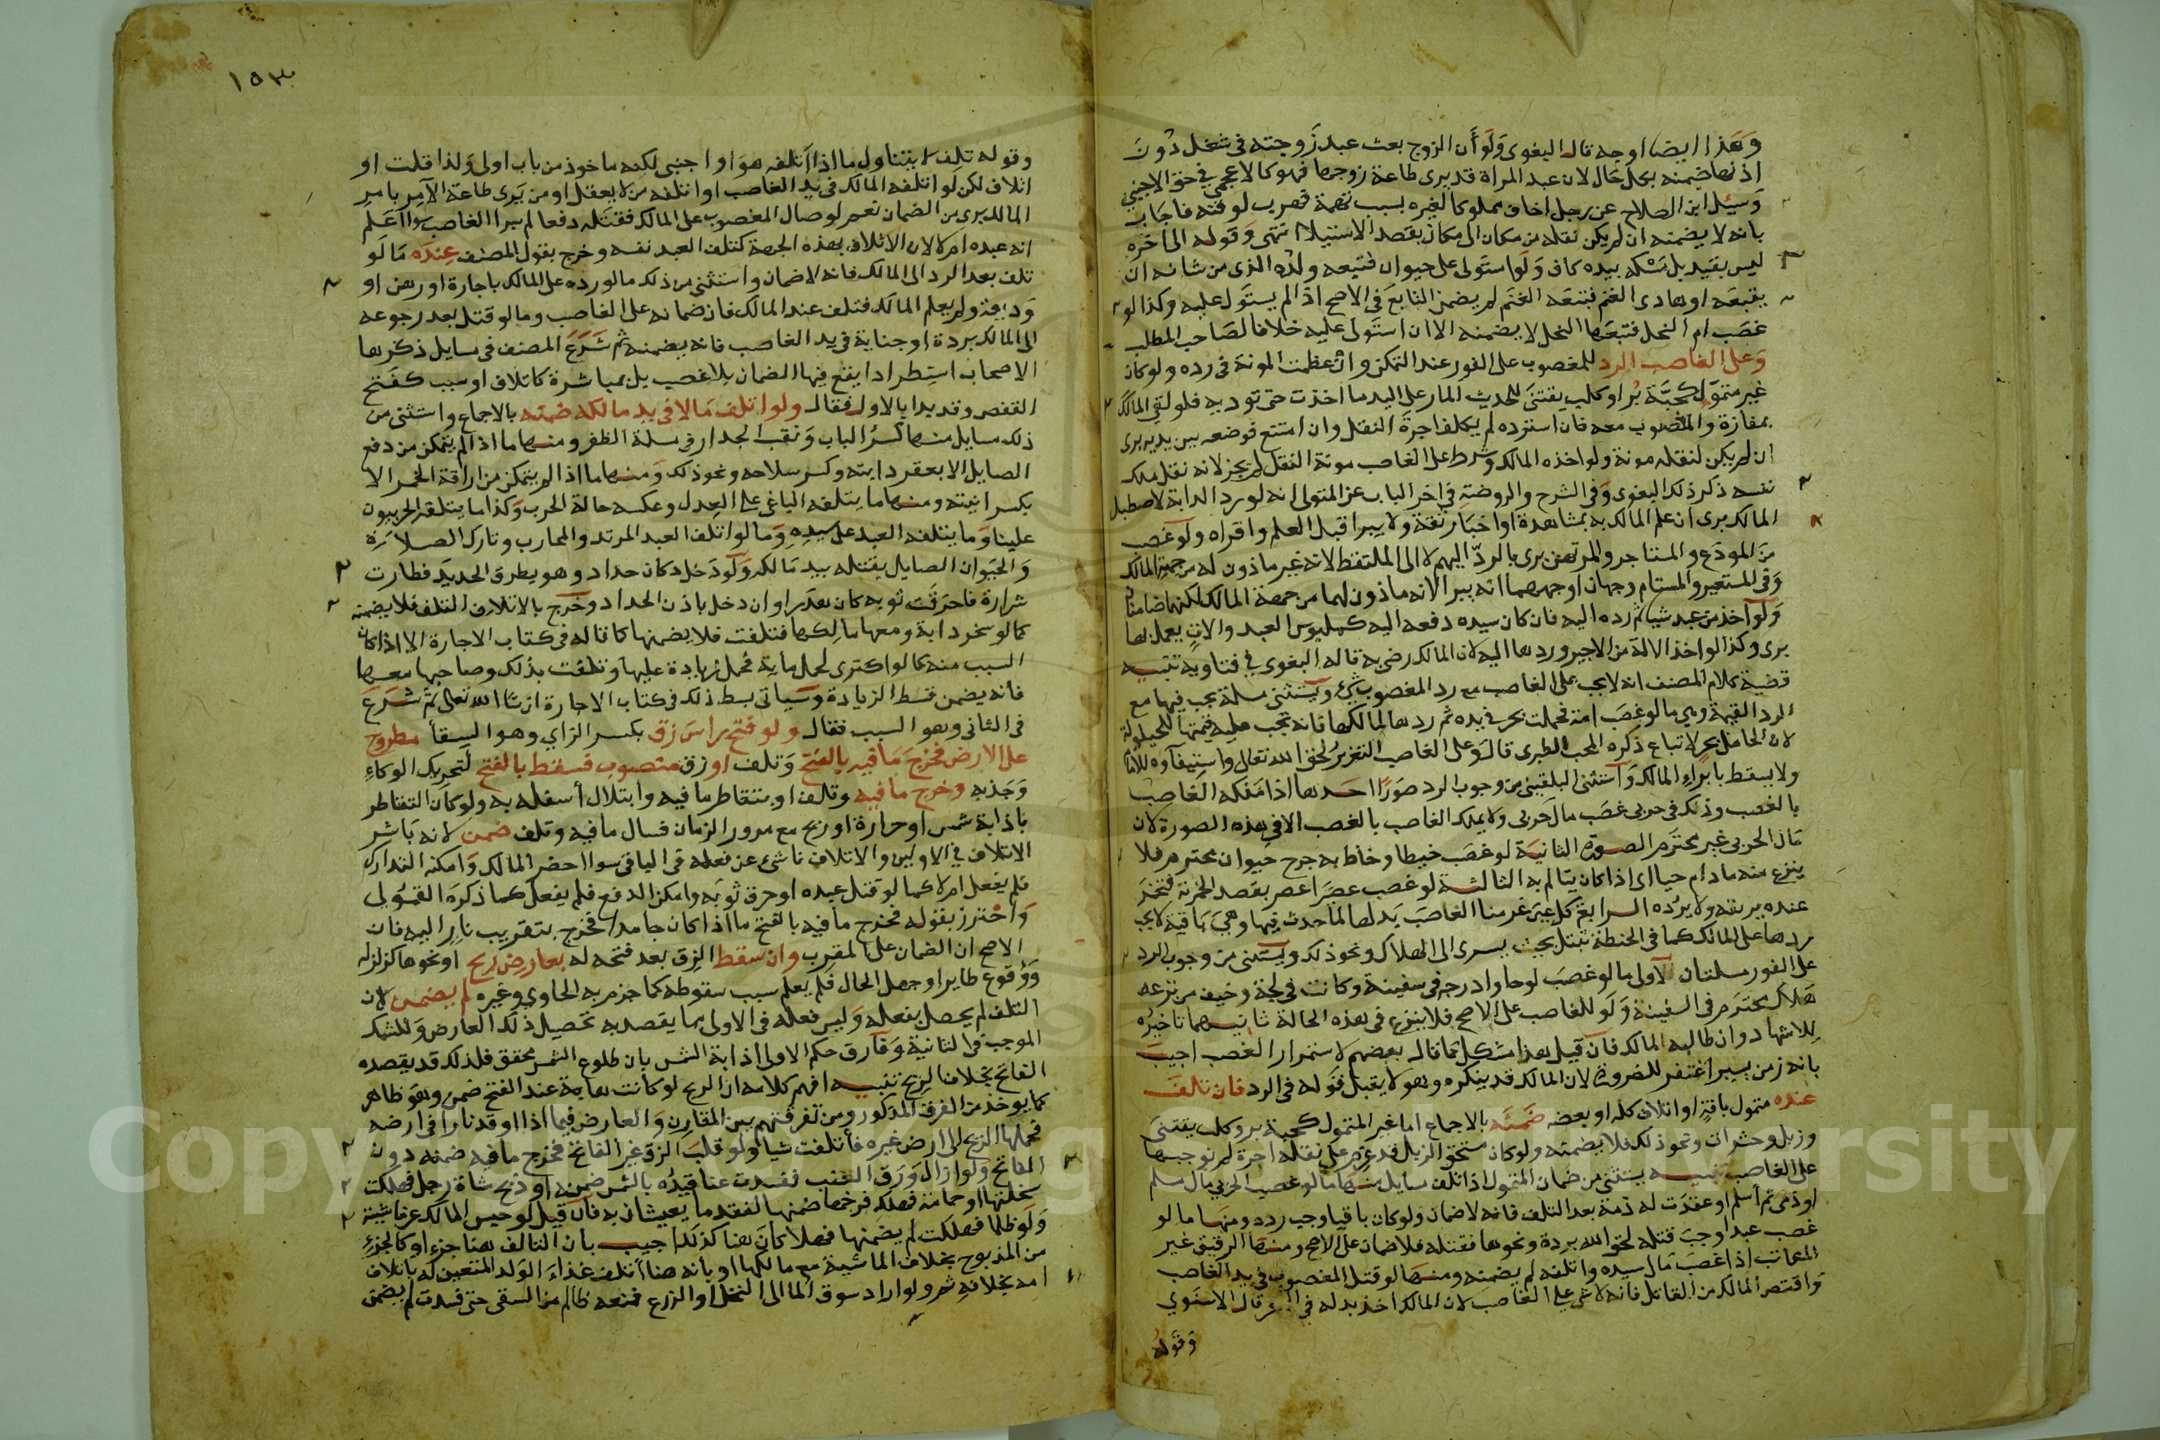 وهذا ايضا اوجه قال البغوي ولو أن الزوج بعث عبد زوجته في شغل دون
اذنها ضمنه بكل حال لان عبد المراة قد يرى طاعة زوجها فهو كالاعجمي في حق الاجنبي
وسئل ابن الصلاح عن رجل اخاف مملوكا لغيره بسبب تهمة فهرب لوقته فاجاب
بانه لا يضمنه ان لم يكن نقله من مكان الى مكان بقصد الاستيلاء انتهى وقوله الماخره
ليس بقيد بل مسكه بيده كاف ولو استولى على حيوان فتبعه ولده الذي من شانه ان
يتبعه او هادي الغنم فتبعه الغنم لم يضمن التابع في الاصح اذ لم يستول عليه وكذا لو
غصب ام النحل فتبعها النحل لا يضمنه الا ان استولى عليه خلافا لصاحب المطلب
وعلى الغاصب الرد للمغصوب على الفور عند التمكن وان عظمت المونة في رده ولو كان
غير متمول كحبة بر او كلب يقتنى لحديث المار على اليد ما اخذت حتى توديه فلو لقي المالك
بمفازة والمغصوب معه فان استرده لم يكلف اجرة النقل وان امتنع فوضعه بين يديه بري
ان لم يكن لنقله مونة ولو اخذه المالك وشرط على الغاصب مونة النقل لم يجز لانه نقل ملك
نفسه ذكر ذلك البغوي وفي الشرح والروضة في اخر الباب عن المتولي انه لو رد الدابة لاصطبل
المالك بري ان علم المالك به بمشاهدة او اخبار ثقة ولا يبرا قبل العلم واقراه ولو غصب
من المودع والمستاجر والمرتهن بري بالرد اليهم لا الى الملتقط لانه غير ماذون له من جهة المالك
وفي المستعير والمستام وجهان اوجههما انه يبرا لانه ماذون لهما من جهة المالك لكنهما ضامنان
ولو اخذ من عبد شيا ثم رده اليه فان كان سيده دفعه اليه كملبوس العبد والات يعمل بها
بري وكذا لو اخذ الالة من الاجير وردها اليه لان المالك رضي به قاله البغوي في فتاويه تنبيه
قضية كلام المصنف انه لا يجب على الغاصب مع رد المغصوب شي ويستثنى مسلة يجب فيها مع
الرد القيمة وهي ما لو غصب امة فحملت بحر في يده ثم ردها لمالكها فانه تجب عليه قيمتها للحيلولة
لان الحامل بحر لا تباع ذكره المحب الطبري قال وعلى الغاصب التعزير لحق الله تعالى واستيفاوه للامام
ولا يسقط بابراء المالك واستثنى البلقيني من وجوب الرد صورا احدها اذا ملكه الغاصب
بالغصب وذلك في حربي غصب مال حربي ولا يملك الغاصب بالغصب الا في هذه الصورة لان
مال الحربي غير محترم الصورة الثانية لو غصب خيطا وخاط به جرح حيوان محترم فلا
ينزع منه مادام حيا اي اذا كان يتالم به الثالثة لو غصب عصيرا عصر بقصد الخمرية فتخمر
عنده يريقه ولا يرده الرابع كل عين غرمنا الغاصب بدلها لما حدث فيها وهي باقية لا يجب
ردها على المالك كما في الحنطة تبتل بحيث يسري الى الهلاك ونحو ذلك ويستثنى من وجوب الرد
على الفور مسلتان الاولى ما لو غصب لوحا وادرجه في سفينة وكانت في لجة وخيف من نزعه
هلاك محترم في السفينة ولو للغاصب على الاصح فلا ينزع في هذه الحالة ثانيهما تاخيره
للاشهاد وان طالبه المالك فان قيل هذا مشكل كما قال بعضهم لاستمرار الغصب اجيب
بانه زمن يسير اغتفر للضرورة لان المالك قد ينكره وهو لا يقبل قوله في الرد فان تلف
عنده متمول بافة او اتلاف كله او بعضه ضمنه بالاجماع اما غير المتمول كحبة بر وكلب يقتنى
وزبل وحشرات ونحو ذلك فلا يضمنه ولو كان مستحق الزبل قد غرم على نقله اجرة لم نوجبها
على الغاصب تنبيه يستثنى من ضمان المتمول اذا تلف مسايل منها ما لو غصب الحربي مال مسلم
او ذمي ثم اسلم او عقدت له ذمة بعد التلف فانه لا ضمان ولو كان باقيا وجب رده ومنها ما لو
غصب عبدا وجب قتله لحق الله بردة ونحوها فقتله فلا ضمان على الاصح ومنها الرقيق غير
المكاتب اذا غصب مال سيده واتلفه لم يضمنه ومنها لو قتل المغصوب في يد الغاصب
واقتص المالك من القاتل فانه لا شي على الغاصب لان المالك اخذ بدله قال الاسنوي
وقوله
١٥٣
وقوله تلف لا يتناول ما اذا أتلفه هو او اجنبي لكنه ماخوذ من باب اولى ولذا قلت او
اتلاف لكن لو اتلفه المالك في يد الغاصب او اتلفه من لا يعقل او من يرى طاعة الآمر بامر
المالك بري من الضمان نعم لو صال المغصوب على المالك فقتله دفعا لم يبرا الغاصب سوا اعلم
انه عبده ام لا لان الاتلاف بهذه الجهة كتلف العبد نفسه وخرج بقول المصنف عنده ما لو
تلف بعد الرد الى المالك فانه لا ضمان واستثني من ذلك ما لو رده على المالك باجارة او رهن او
وديعة ولم يعلم المالك فتلف عند المالك فان ضمانه على الغاصب وما لو قتل بعد رجوعه
الى المالك بردة او جناية في يد الغاصب فانه يضمنه ثم شرع المصنف في مسايل ذكرها
الاصحاب استطرادا يقع فيها الضمان بلا غصب بل بمباشرة كاتلاف او سبب كفتح
القفص وقد بدا بالاول فقال ولو اتلف مالا في يد مالكه ضمنه بالاجماع واستثني من
ذلك مسايل منها كسر الباب ونقب الجدار في مسلة الظفر ومنها ما اذا لم يتمكن من دفع
الصايل الا بعقر دابته وكسر سلاحه ونحو ذلك ومنها ما اذا لم يتمكن من اراقة الخمر الا
بكسر انيته ومنها ما يتلفه الباغي على العدل وعكسه حالة الحرب وكذا ما يتلفه الحربيون
علينا وما يتلفه العبد على سيده وما لو اتلف العبد المرتد والمحارب وتارك الصلاة
والحيوان الصايل بقتله بيد مالكه ولو دخل دكان حداد وهو يطرق الحديد فطارت
شرارة فاحرقت ثوبه كان هدرا وان دخل باذن الحداد وخرج بالاتلاف التلف فلا يضمنه
كما لو سخر دابة ومعها مالكها فتلفت فلا يضمنها كما قاله في كتاب الاجارة الا اذا كان
السبب منه كما لو اكترى لحمل ماية فحمل زيادة عليها وتلفت بذلك وصاحبها معها
فانه يضمن قسط الزيادة وسياتي بسط ذلك في كتاب الاجارة ان شا الله تعالى ثم شرع
في الثاني وهو السبب فقال ولو فتح راس زق بكسر الزاي وهو السقا مطروح
على الارض فخرج ما فيه بالفتح وتلف او زق منصوب فسقط بالفتح لتحريك الوكاء
وجذبه وخرج ما فيه وتلف او بتقاطر ما فيه وابتلال أسفله به ولو كان التقاطر
باذابة شمس او حرارة او ريح مع مرور الزمان فسال ما فيه وتلف ضمن لانه باشر
الاتلاف في الاولين والاتلاف ناشئ عن فعله في الباقي سوا احضر المالك وامكنه التدارك
فلم يفعل ام لا كما لو قتل عبده او حرق ثوبه وامكن الدفع فلم يفعل كما ذكره القمولي
واحترز بقوله فخرج ما فيه بالفتح ما اذا كان جامدا فخرج بتقريب نار اليه فان
الاصح ان الضمان على المقرب وان سقط الزق بعد فتحه له بعارض ريح او نحوها كزلزلة
ووقوع طاير او جهل الحال فلم يعلم سبب سقوطه كما جزم به الحاوي وغيره لم يضمن لان
التلف لم يحصل بفعله وليس فعله في الاولى مما يقصد به تحصيل ذلك العارض وللشك
الموجب في الثانية وفارق حكم الاولى اذابة الشمس بان طلوع الشمس محقق فلذلك قد يقصده
الفاتح بخلاف الريح تنبيه افهم كلامه ان الريح لو كانت هابة عند الفتح ضمن وهو ظاهر
كما يوخذ من الفرق المذكور ومن تفرقتهم بين المقارن والعارض فيما اذا اوقد نارا في ارضه
فحملها الريح الى ارض غيره فأتلفت شيا ولو قلب الزق غير الفاتح فخرج ما فيه ضمنه دون
الفاتح ولو ازال ورق العنب ففسدت عناقيده بالشمس ضمنه او ذبح شاة رجل فهلكت
سخلتها او حمامة فهلك فرخها ضمنها لفقد ما يعيشان به فان قيل لو حبس المالك عن ماشيته
ولو ظلما فهلكت لم يضمنها فهلا كان هنا كذلك اجيب بان التالف هنا جزء او كالجزء
من المذبوح بخلاف الماشية مع مالكها او بانه هنا أتلف غذاء الولد المتعين له باتلاف
امه بخلافه ثم ولو اراد سوق الما الى النخل او الزرع فمنعه ظالم من السقي حتى فسدت لم يضمن